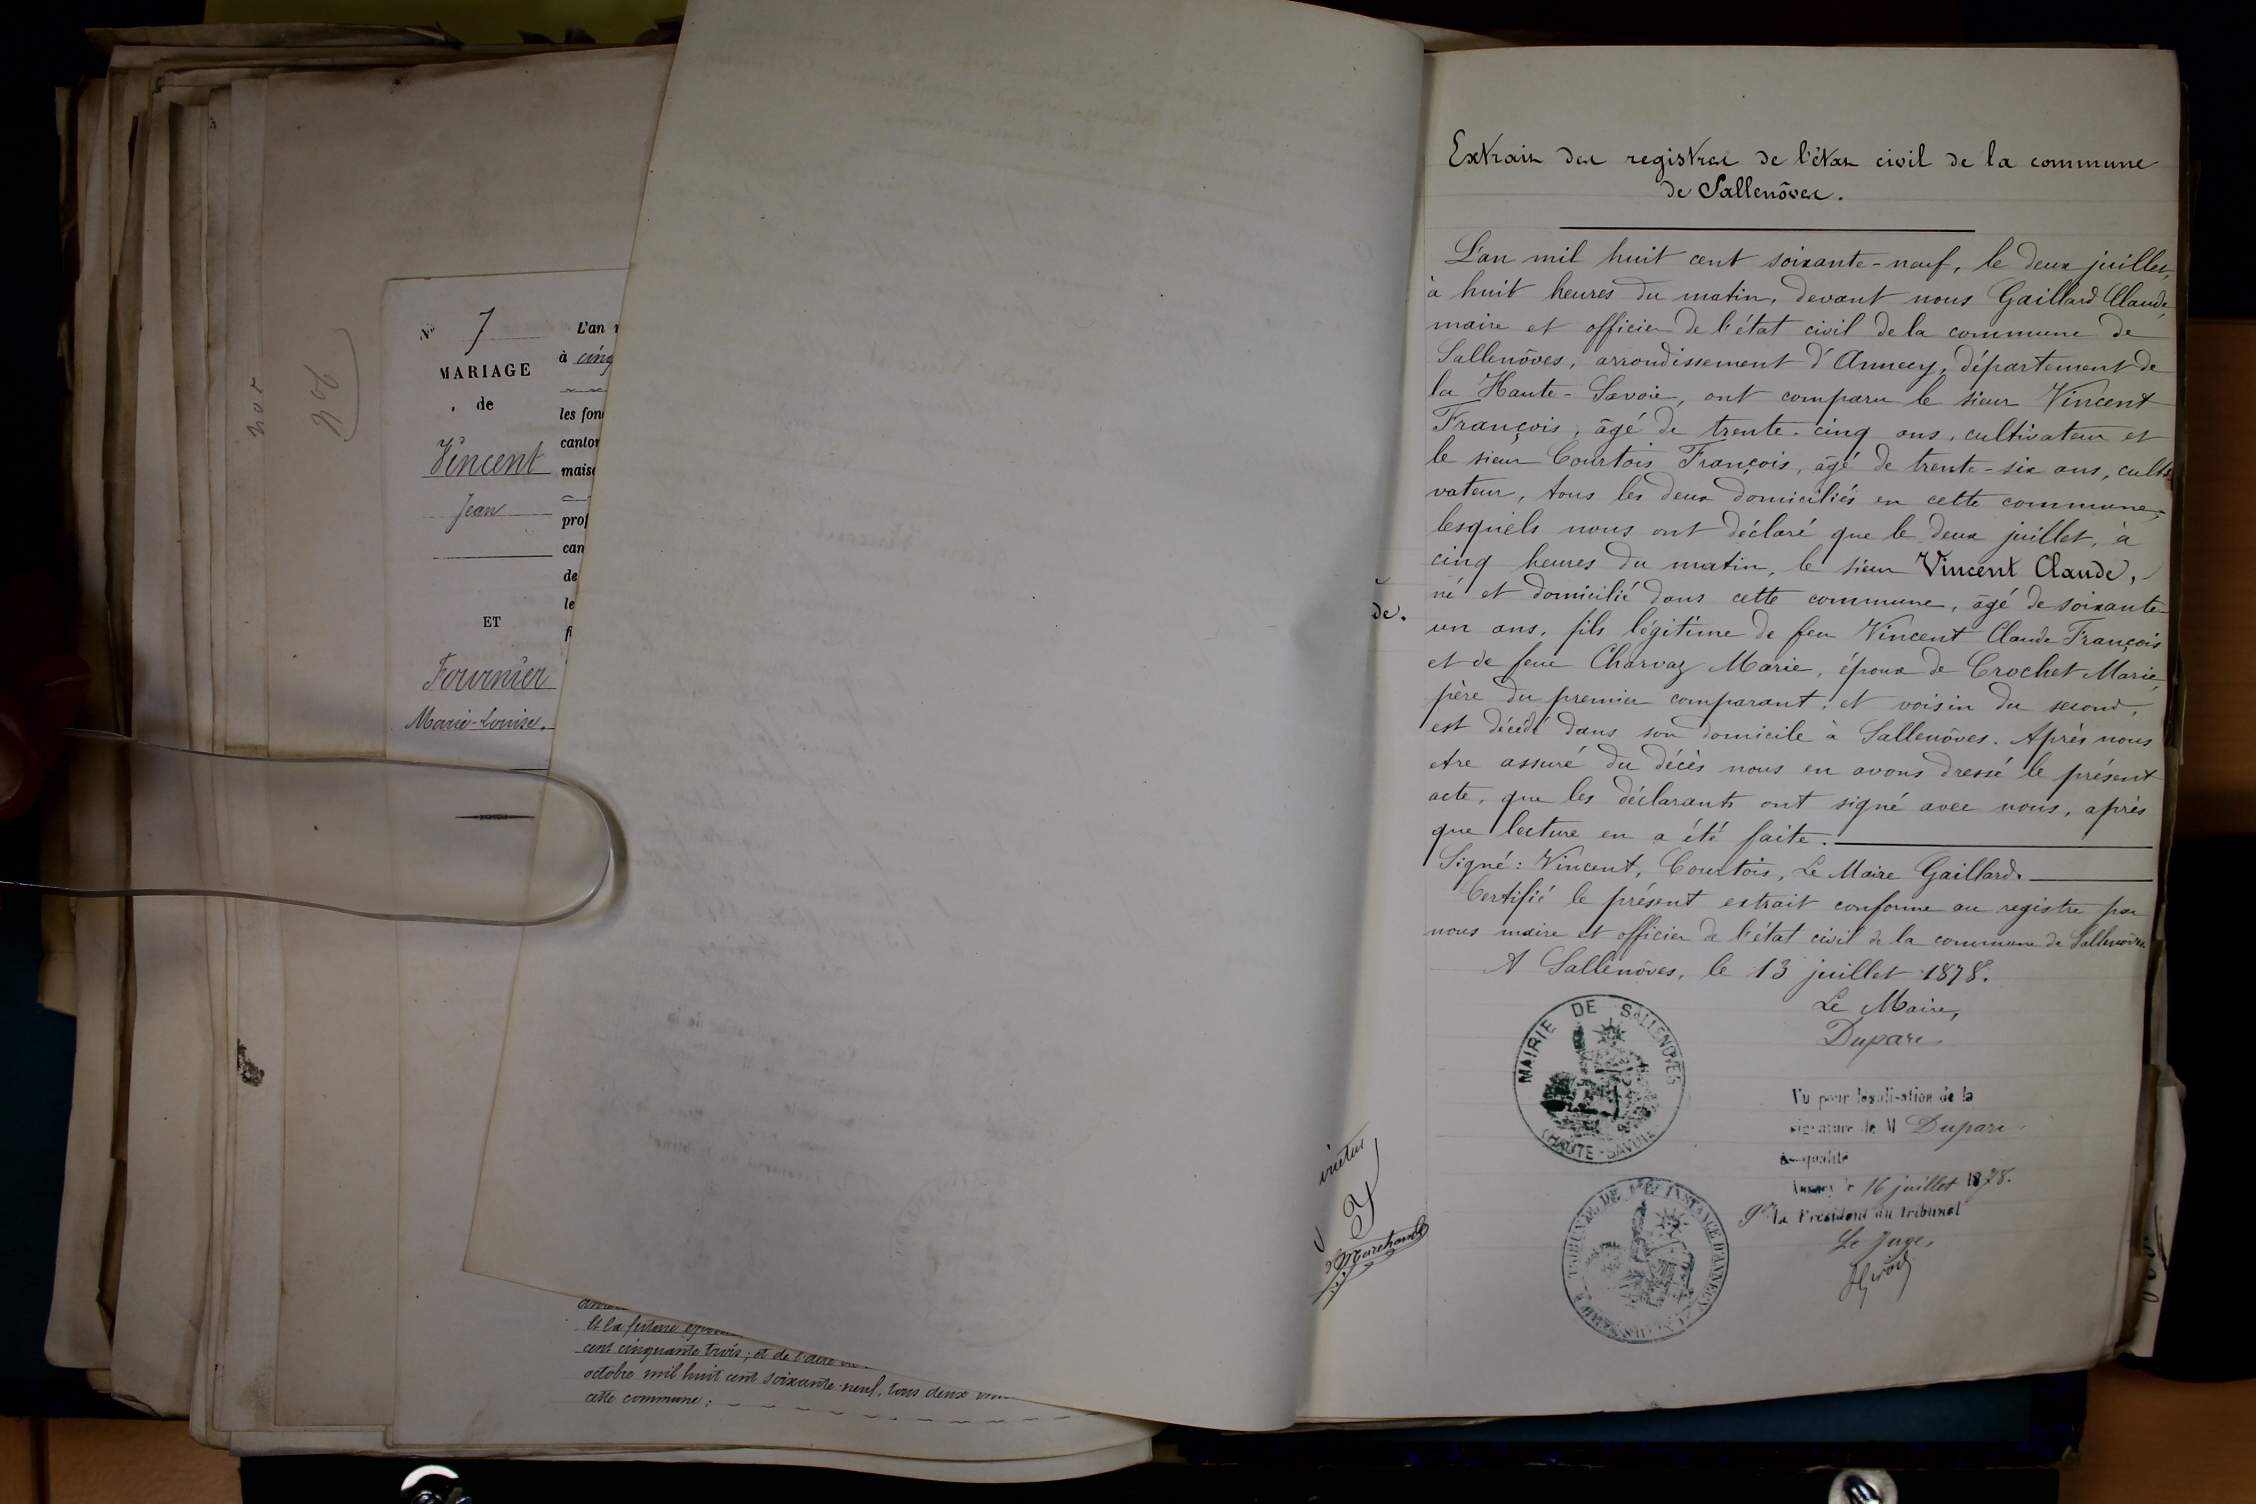 N° 7
MARIAGE
de
Vincent
Jean
ET
Fournier
Marie-Louise.
L'an
à cinq
les fon
canton
mais
prof
can
de
le
cent cinquante trois; et de l'acte
octobre mil huit cent soixante-neuf, tous deux
cette commune;
de.
Marchand
Extrait des registres de l'état civil de la commune
de Sallenôves.
L'an mil huit cent soixante-neuf, le deux juillet,
à huit heures du matin, devant nous Gaillard Claude,
maire et officier de l'état civil de la commune de
Sallenôves, arrondissement d'Annecy, département de
la Haute-Savoie, ont comparu le sieur Vincent
François, âgé de trente-cinq ans, cultivateur et
le sieur Courtois François, âgé de trente-six ans, culti-
vateur, tous les deux domiciliés en cette commune,
lesquels nous ont déclaré que le deux juillet, à
cinq heures du matin, le sieur Vincent Claude,
né et domicilié dans cette commune, âgé de soixante
un ans, fils légitime de feu Vincent Claude François
et de feue Charvaz Marie, époux de Crochet Marie,
père du premier comparant, et voisin du second,
est décédé dans son domicile à Sallenôves. Après nous
être assuré du décès nous en avons dressé le présent
acte, que les déclarants ont signé avec nous, après
que lecture en a été faite.
Signé: Vincent, Courtois, Le Maire Gaillard.
Certifié le présent extrait conforme au registre par
nous maire et officier de l'état civil de la commune de Sallenôves
A Sallenôves, le 13 juillet 1878.
Le Maire,
Duparc
MAIRIE DE SALLENOVES
(HAUTE-SAVOIE)
Vu pour légalisation de la
signature de M Duparc
qualité
Annecy le 16 juillet 1878.
Pr le Président du tribunal
Le Juge,
TRIBUNAL DE 1ERE INSTANCE D'ANNECY